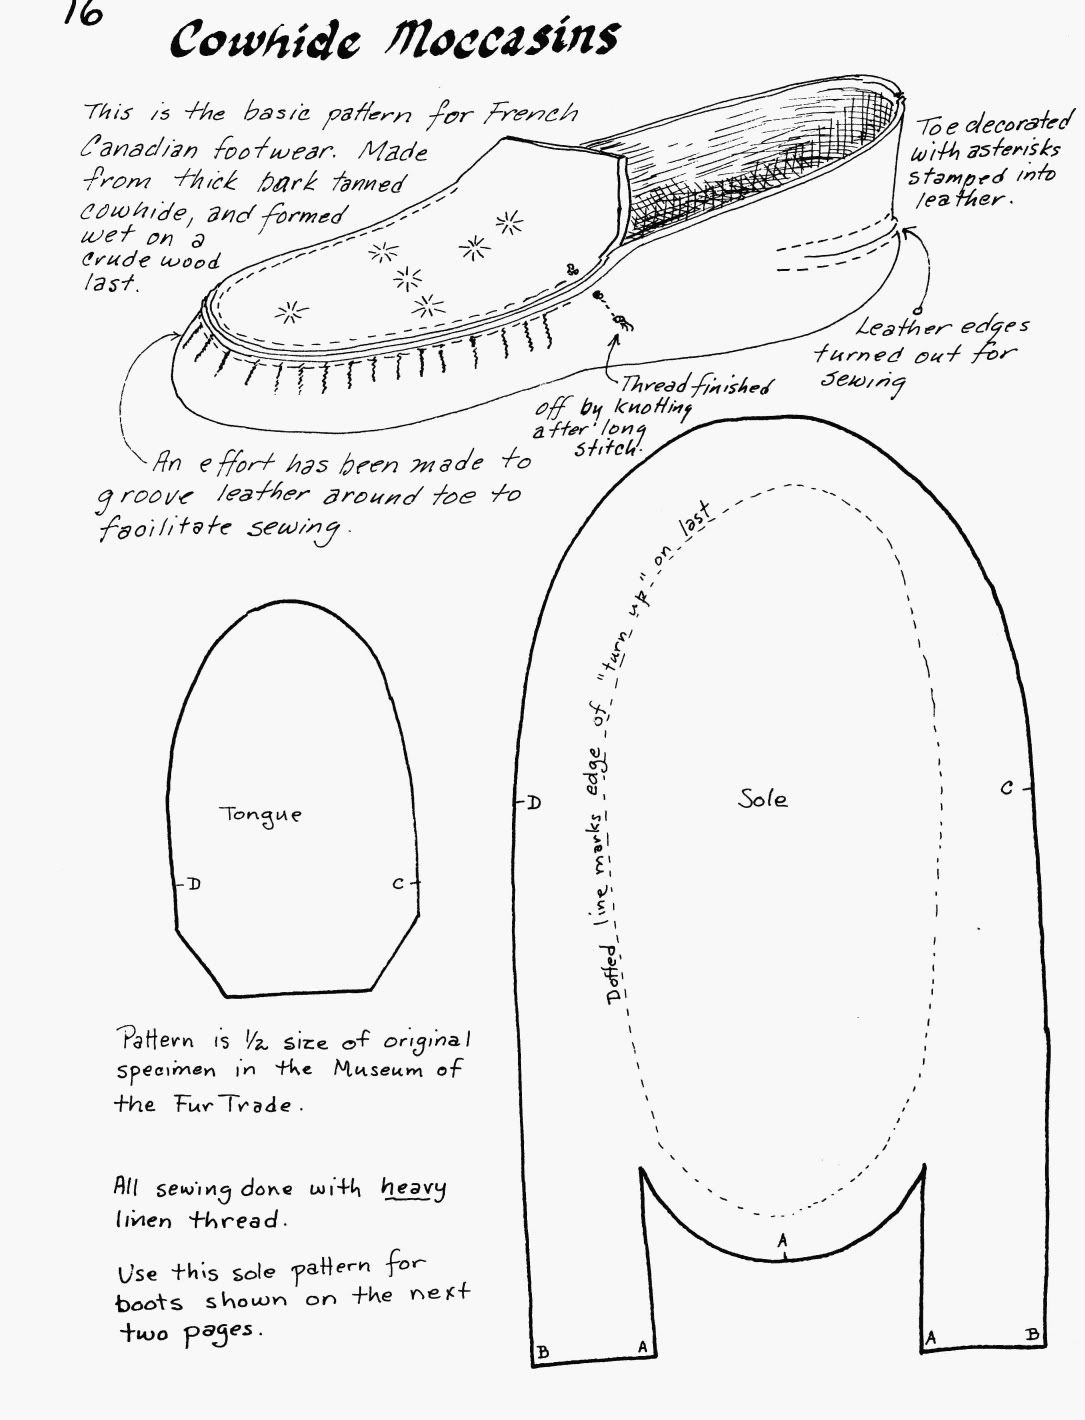 16
Cowhide Moccasins
This is the basic pattern for French
Canadian footwear. Made
from thick bark tanned
cowhide, and formed
wet on a
crude wood
last.
Toe decorated
with asterisks
stamped into
leather.
Leather edges
turned out for
sewing
Thread finished
off by knotting
after long
stitch.
An effort has been made to
groove leather around toe to
facilitate sewing.
Dotted line marks edge of "turn up" on last
Tongue
D
C
D
Sole
C
A
B
A
A
B
Pattern is 1/2 size of original
specimen in the Museum of
the Fur Trade.
All sewing done with heavy
linen thread.
Use this sole pattern for
boots shown on the next
two pages.